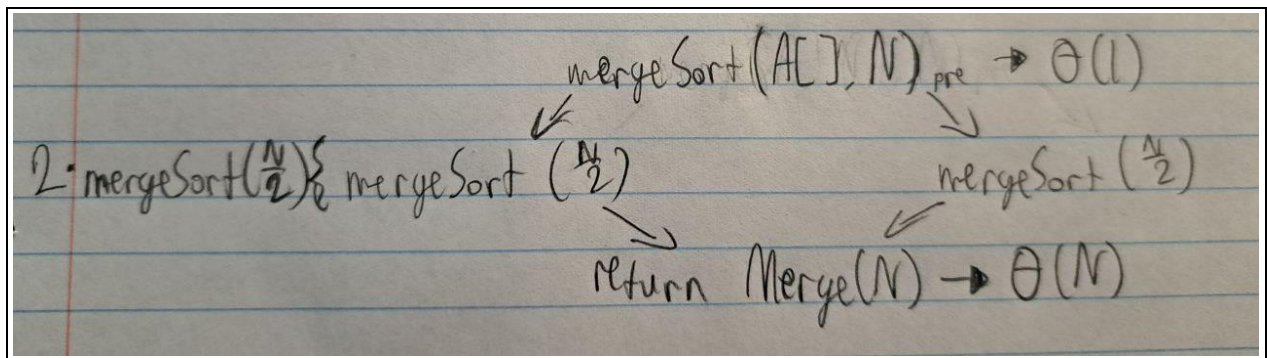 mergeSort(A[], N)pre → Θ(1)
2·mergeSort(N/2){ mergeSort (N/2) mergeSort (N/2)
return Merge(N) → Θ(N)